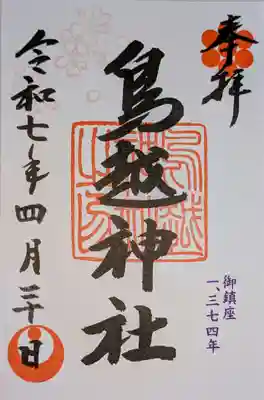 奉拝
御鎮座
一、三七四年
鳥越神社
令和七年四月三十日